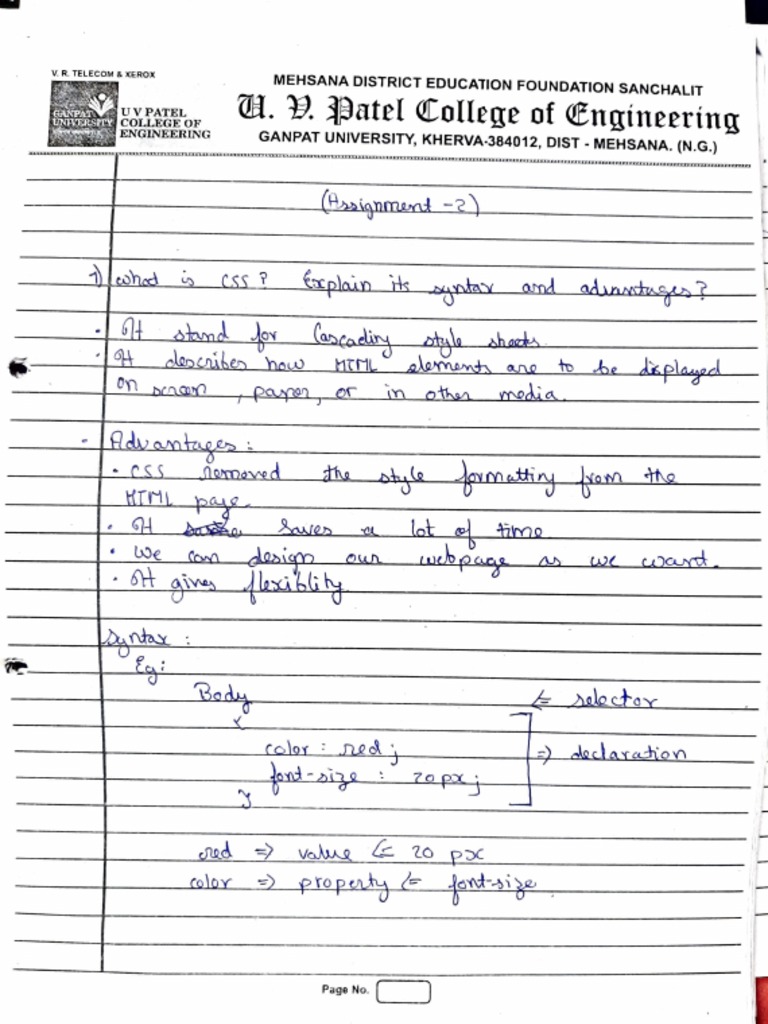 V. R. TELECOM & XEROX
GANPAT UNIVERSITY
U V PATEL COLLEGE OF ENGINEERING
MEHSANA DISTRICT EDUCATION FOUNDATION SANCHALIT
U. V. Patel College of Engineering
GANPAT UNIVERSITY, KHERVA-384012, DIST - MEHSANA. (N.G.)
(Assignment -2)
1) what is CSS? Explain its syntax and advantages?
· It stand for Cascading style sheets.
· It describes how HTML elements are to be displayed
on screen, paper, or in other media.
· Advantages:
· CSS removed the style formatting from the
HTML page.
· It saves a lot of time
· We can design our webpage as we want.
· It gives flexiblity
Syntax :
Eg:
Body <= selector
{
color : red; => declaration
font-size : 20px;
}
red => value <= 20 px
color => property <= font-size
Page No.